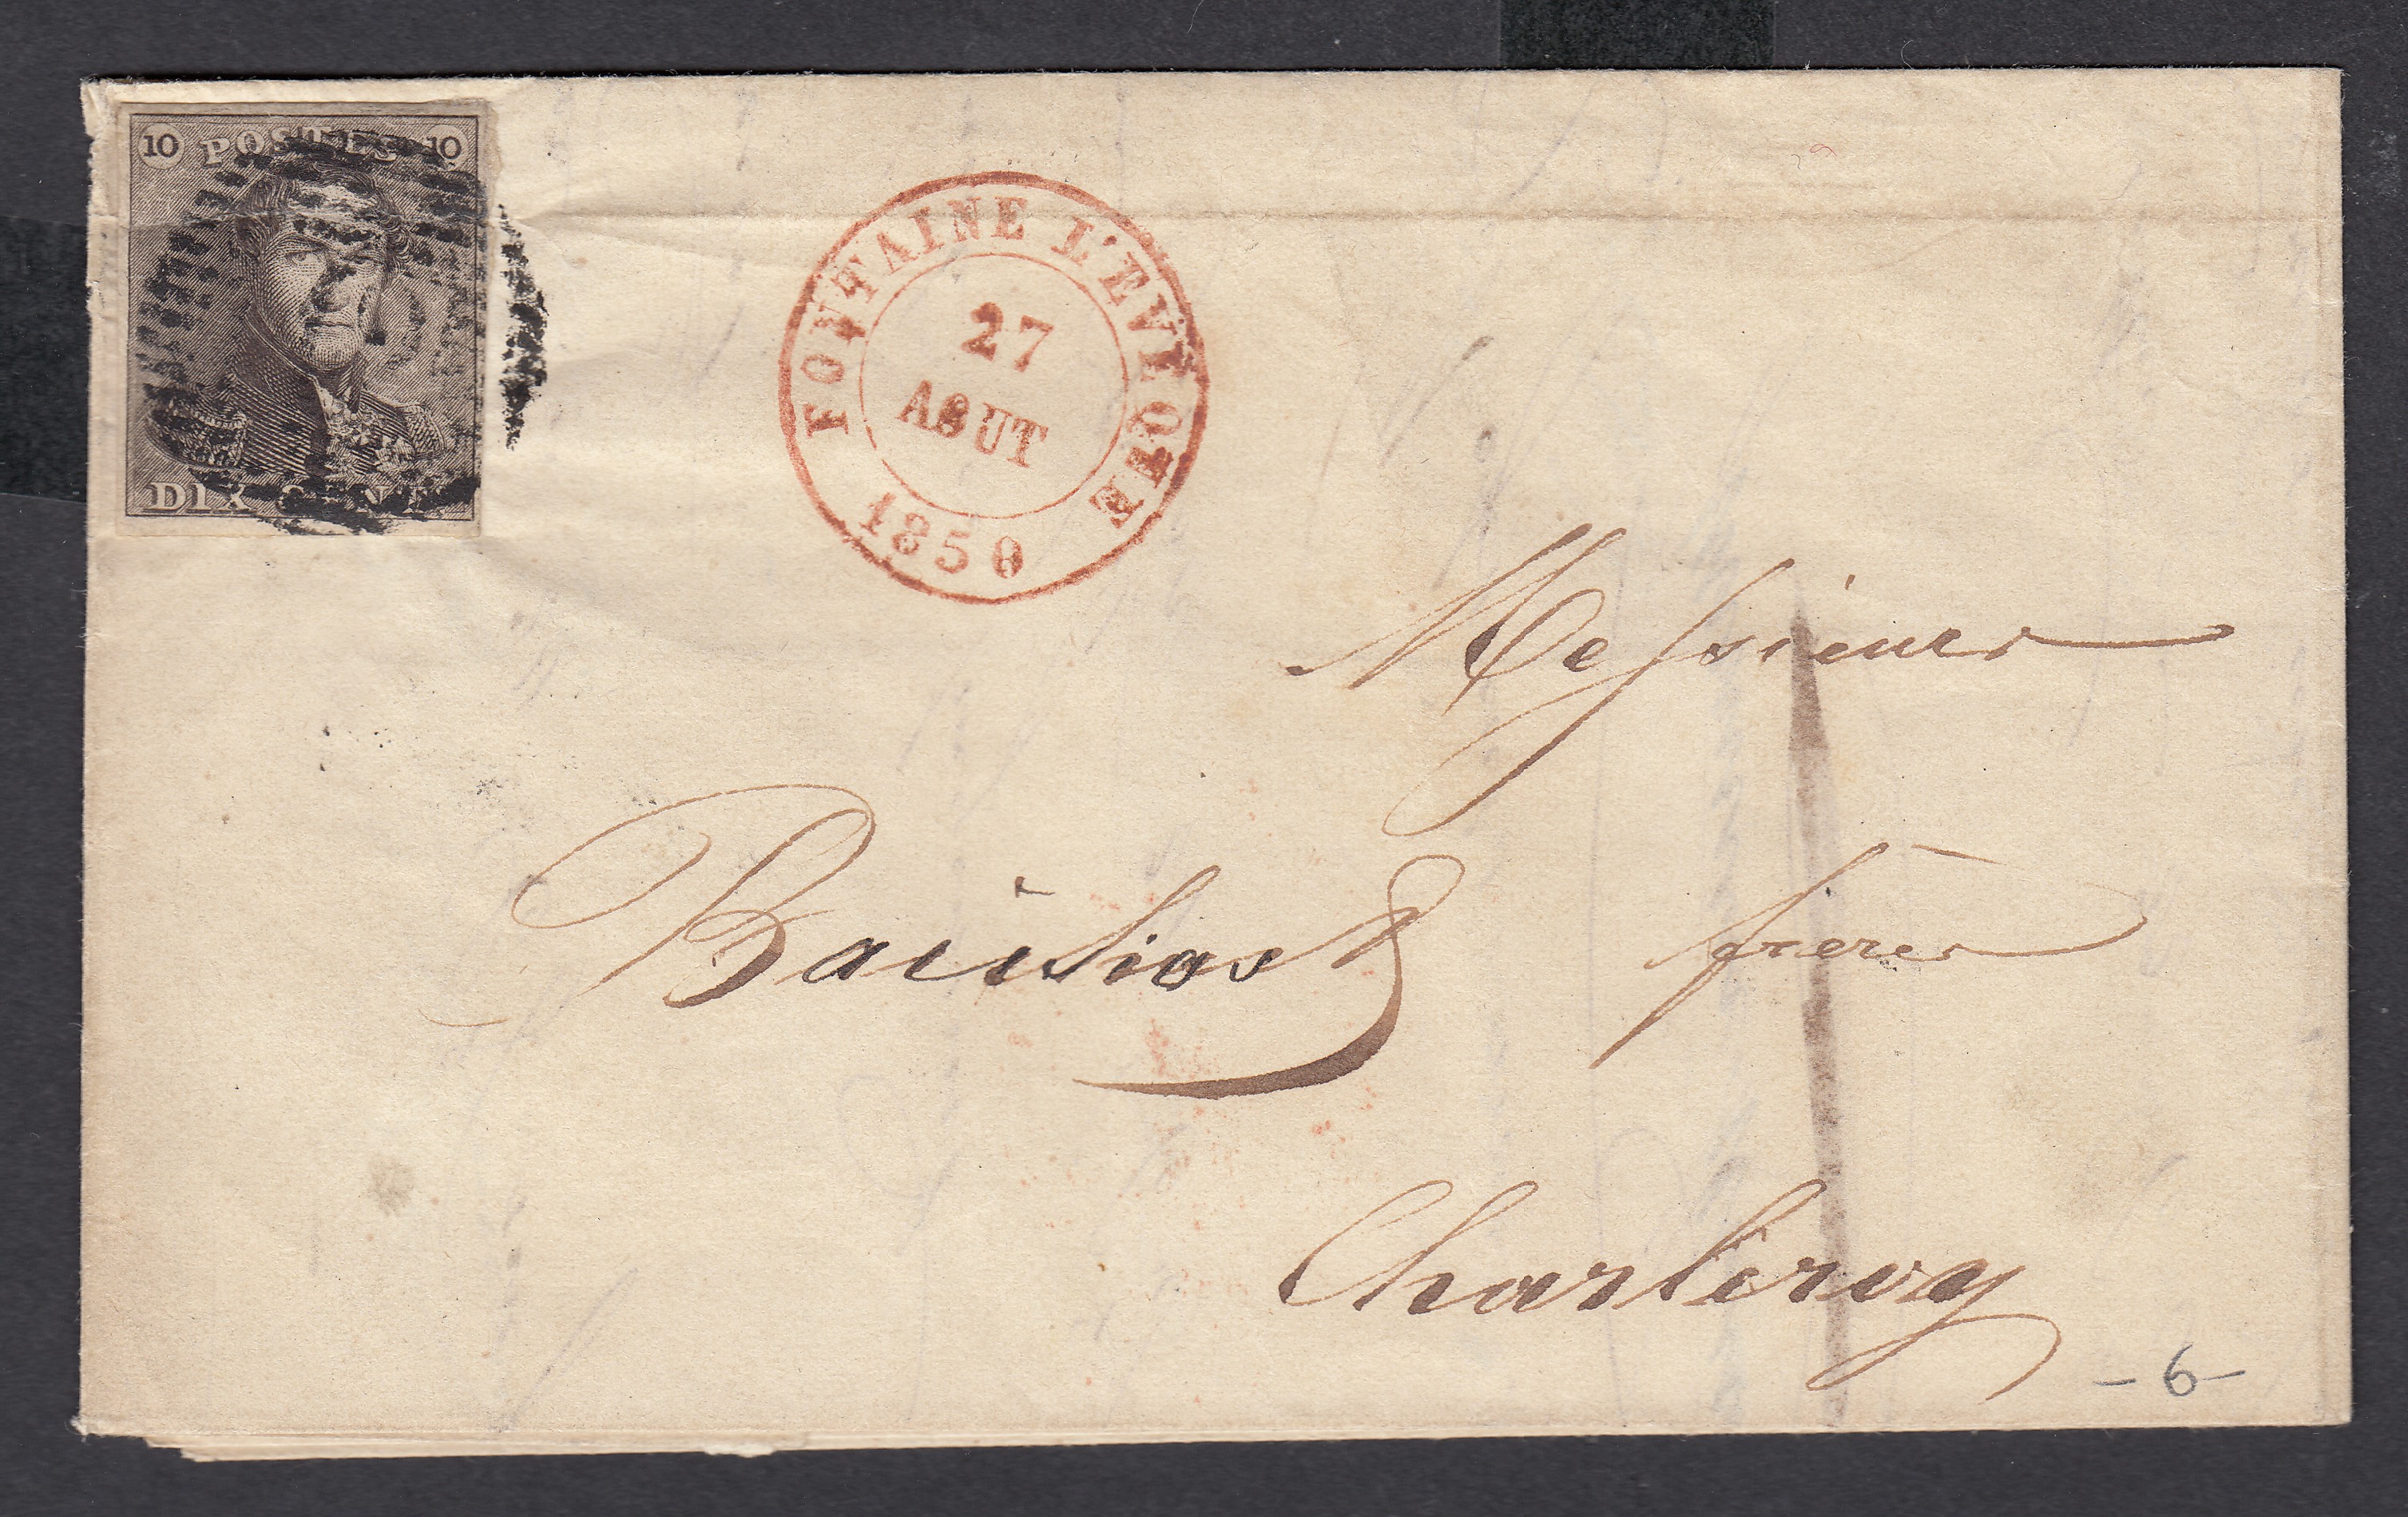 10 POSTES 10
DIX CENTS
FONTAINE L'EVÊQUE
27
AOUT
1850
Messieurs
frères
Charleroy
- 6 -